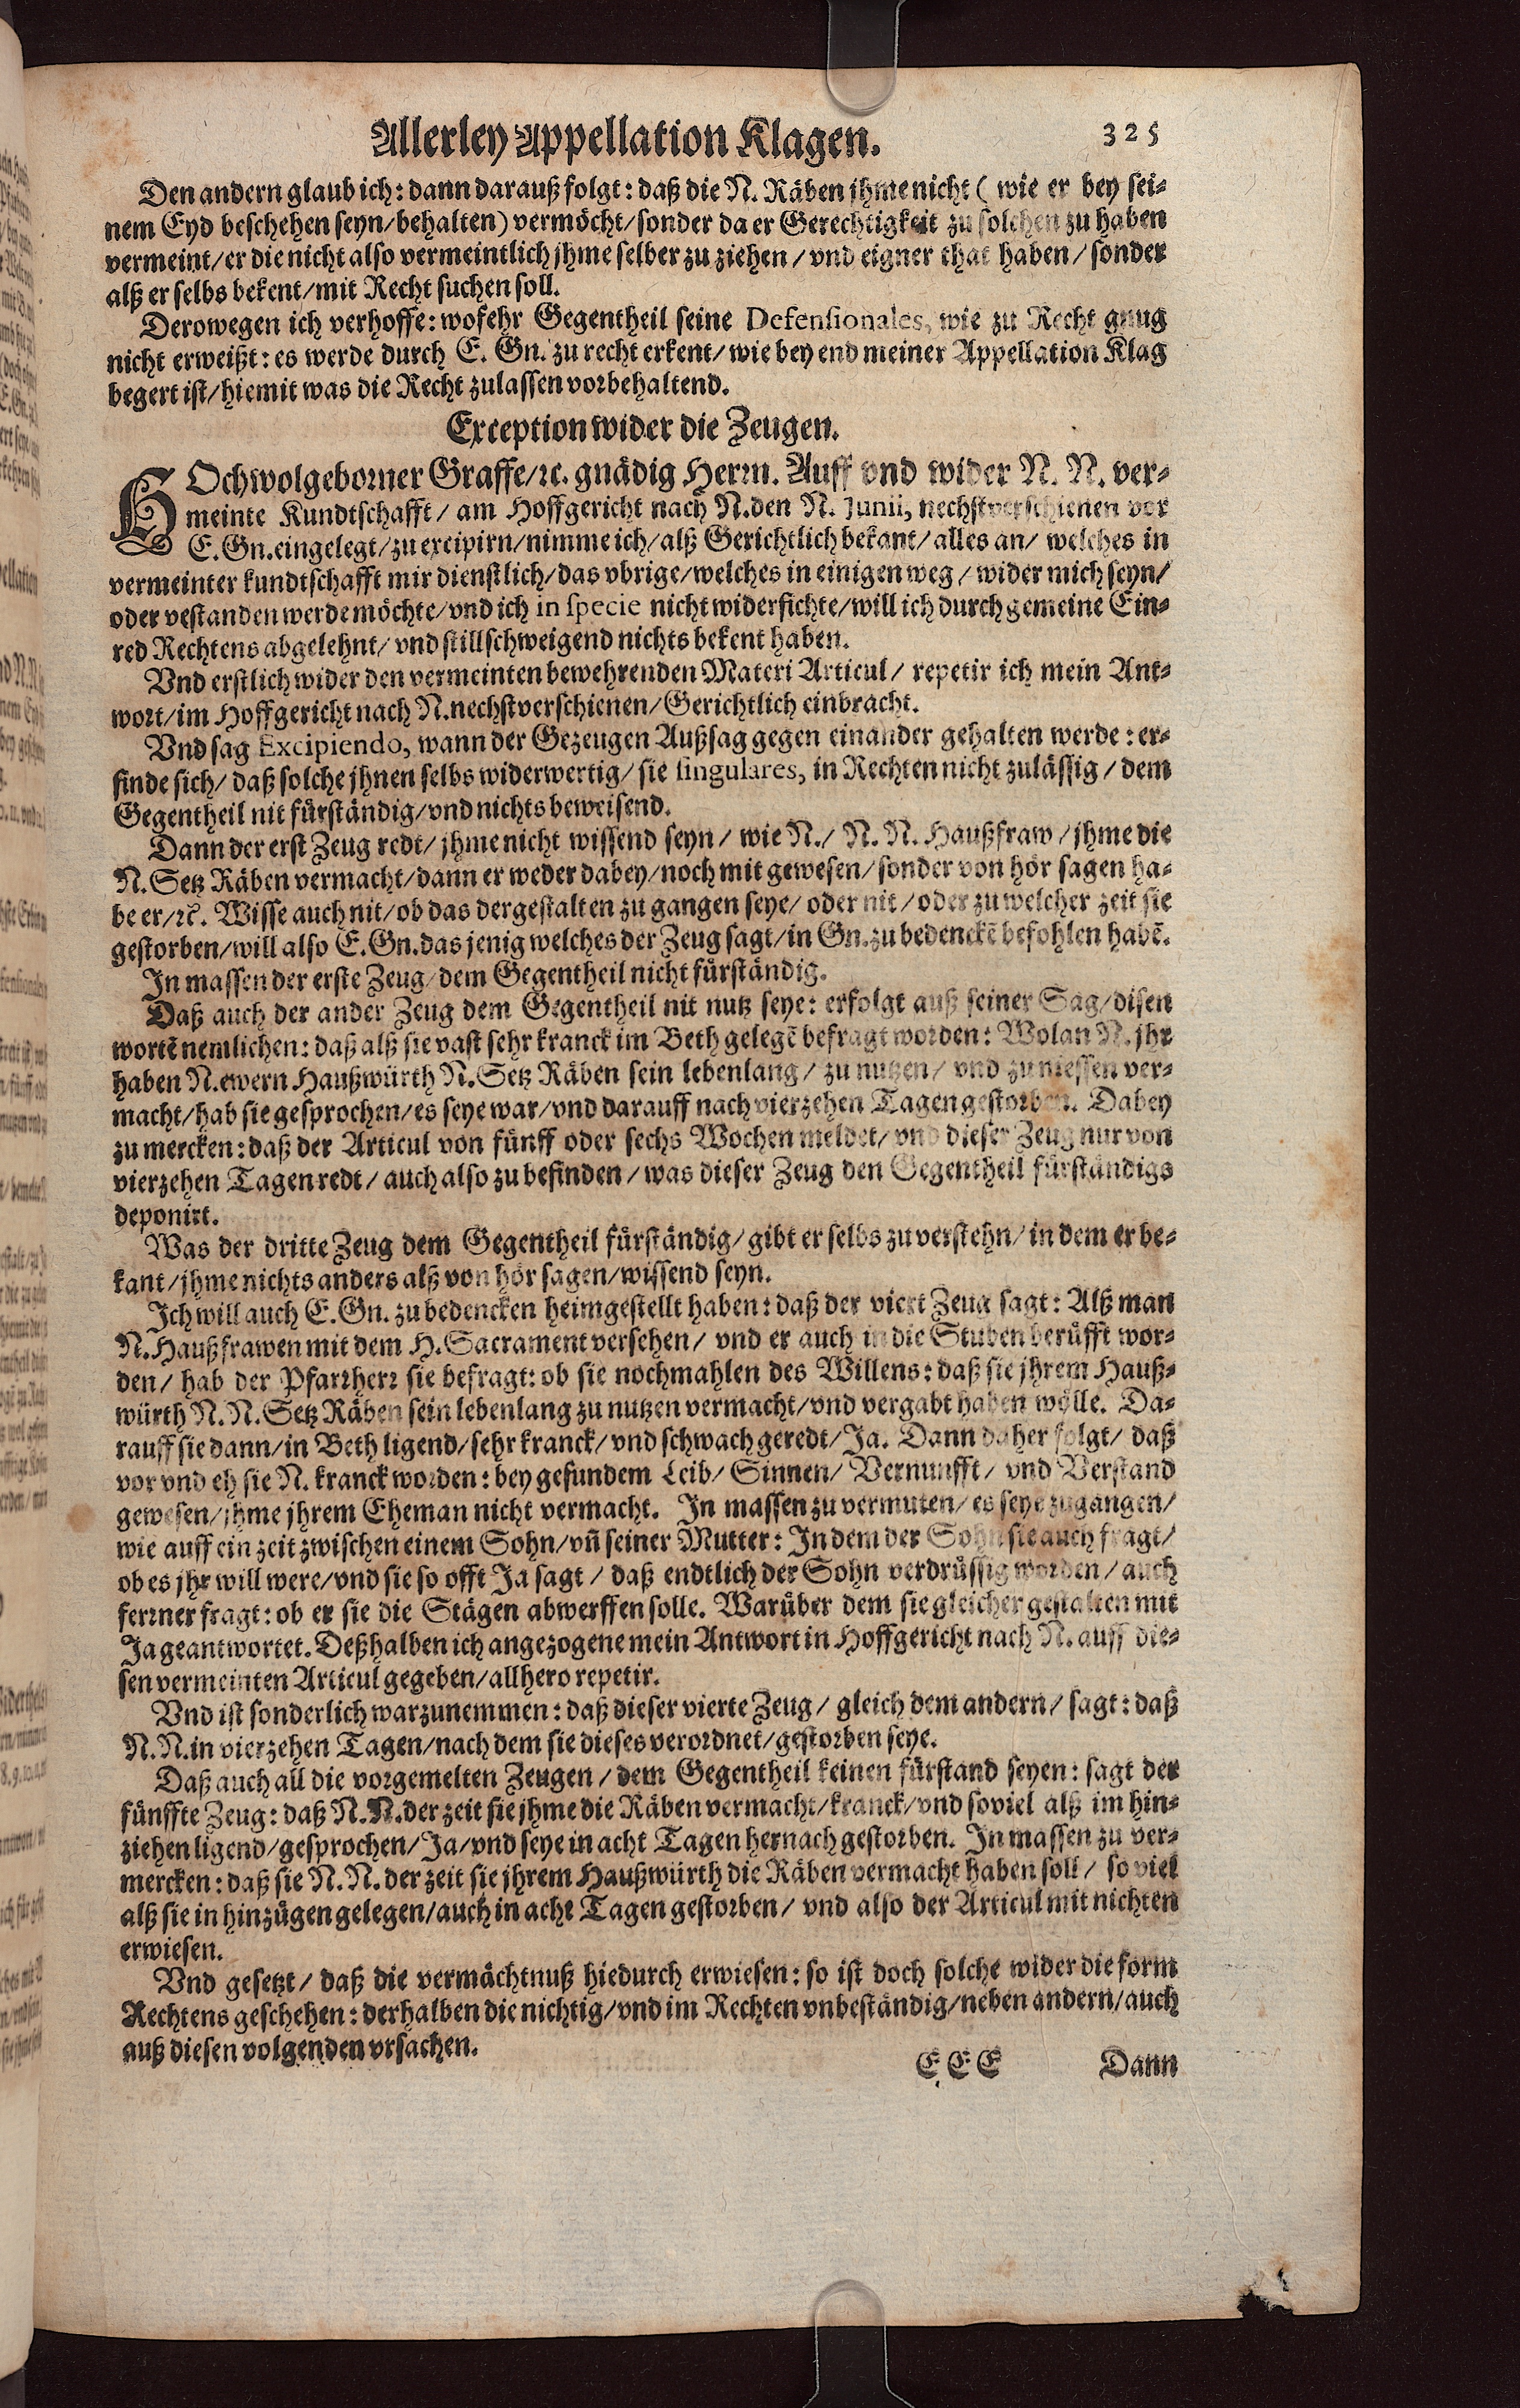 Allerley Appellation Klagen. 325
Den andern glaub ich: dann darauß folgt: daß die N. Räben jhme nicht ( wie er bey sei-
nem Eyd beschehen seyn/behalten) vermöcht/sonder da er Gerechtigkeit zu solchen zu haben
vermeint/er die nicht also vermeintlich jhme selber zu ziehen/vnd eigner that haben/sonder
alß er selbs bekent/mit Recht suchen soll.
Derowegen ich verhoffe: wofehr Gegentheil seine Defensionales, wie zu Recht gnug
nicht erweißt: es werde durch E. Gn. zu recht erkent/wie bey end meiner Appellation Klag
begert ist/hiemit was die Recht zulassen vorbehaltend.
Exception wider die Zeugen.
HOchwolgeborner Graffe/ꝛc. gnädig Herrn. Auff vnd wider N. N. ver-
meinte Kundtschafft/am Hoffgericht nach N. den N. Junii, nechstverschienen vor
E. Gn. eingelegt/zu excipirn/nimme ich/alß Gerichtlich bekant/alles an/welches in
vermeinter kundtschafft mir dienstlich/das vbrige/welches in einigen weg/wider mich seyn/
oder vestanden werde möchte/vnd ich in specie nicht widerfichte/will ich durch gemeine Ein-
red Rechtens abgelehnt/vnd stillschweigend nichts bekent haben.
Vnd erstlich wider den vermeinten bewehrenden Materi Articul/repetir ich mein Ant-
wort/im Hoffgericht nach N. nechstverschienen/Gerichtlich einbracht.
Vnd sag Excipiendo, wann der Gezeugen Außsag gegen einander gehalten werde: er-
finde sich/daß solche jhnen selbs widerwertig/sie singulares, in Rechten nicht zulässig/dem
Gegentheil nit fürständig/vnd nichts beweisend.
Dann der erst Zeug redt/jhme nicht wissend seyn/wie N./N. N. Haußfraw/jhme die
N. Setz Räben vermacht/dann er weder dabey/noch mit gewesen/sonder von hör sagen ha-
be er/ꝛc. Wisse auch nit/ob das dergestalten zu gangen seye/oder nit/oder zu welcher zeit sie
gestorben/will also E. Gn. das jenig welches der Zeug sagt/in Gn. zu bedenckē befohlen habē.
In massen der erste Zeug/dem Gegentheil nicht fürständig.
Daß auch der ander Zeug dem Gegentheil nit nutz seye: erfolgt auß seiner Sag/disen
wortē nemlichen: daß alß sie vast sehr kranck im Beth gelegē befragt worden: Wolan N. jhr
haben N. ewern Haußwürth N. Setz Räben sein lebenlang/zu nutzen/vnd zu niessen ver-
macht/hab sie gesprochen/es seye war/vnd darauff nach vierzehen Tagen gestorben. Dabey
zu mercken: daß der Articul von fünff oder sechs Wochen meldet/vnd dieser Zeug nur von
vierzehen Tagen redt/auch also zu befinden/was dieser Zeug den Gegentheil fürständigs
deponirt.
Was der dritte Zeug dem Gegentheil fürständig/gibt er selbs zu verstehn/in dem er be-
kant/jhme nichts anders alß von hör sagen/wissend seyn.
Ich will auch E. Gn. zu bedencken heimgestellt haben: daß der viert Zeug sagt: Alß man
N. Haußfrawen mit dem H. Sacrament versehen/vnd er auch in die Stuben berüfft wor-
den/hab der Pfarrherr sie befragt: ob sie nochmahlen des Willens: daß sie jhrem Hauß-
würth N. N. Setz Räben sein lebenlang zu nutzen vermacht/vnd vergabt haben wölle. Da-
rauff sie dann/in Beth ligend/sehr kranck/vnd schwach geredt/Ja. Dann daher folgt/daß
vor vnd eh sie N. kranck worden: bey gesundem Leib/Sinnen/Vernunfft/vnd Verstand
gewesen/jhme jhrem Eheman nicht vermacht. In massen zu vermuten/es seye zugangen/
wie auff ein zeit zwischen einem Sohn/vñ seiner Mutter: In dem der Sohn sie auch fragt/
ob es jhr will were/vnd sie so offt Ja sagt/daß endtlich der Sohn verdrüssig worden/auch
ferrner fragt: ob er sie die Stägen abwerffen solle. Warüber dem sie gleicher gestalten mit
Ja geantwortet. Deßhalben ich angezogene mein Antwort in Hoffgericht nach N. auff die-
sen vermeinten Articul gegeben/allhero repetir.
Vnd ist sonderlich warzunemmen: daß dieser vierte Zeug/gleich dem andern/sagt: daß
N. N. in vierzehen Tagen/nach dem sie dieses verordnet/gestorben seye.
Daß auch all die vorgemelten Zeugen/dem Gegentheil keinen fürstand seyen: sagt der
fünffte Zeug: daß N. N. der zeit sie jhme die Räben vermacht/kranck/vnd soviel alß im hin-
ziehen ligend/gesprochen/Ja/vnd seye in acht Tagen hernach gestorben. In massen zu ver-
mercken: daß sie N. N. der zeit sie jhrem Haußwürth die Räben vermacht haben soll/so viel
alß sie in hinzügen gelegen/auch in acht Tagen gestorben/vnd also der Articul mit nichten
erwiesen.
Vnd gesetzt/daß die vermächtnuß hiedurch erwiesen: so ist doch solche wider die form
Rechtens geschehen: derhalben die nichtig/vnd im Rechten vnbeständig/neben andern/auch
auß diesen volgenden vrsachen.
E E E Dann